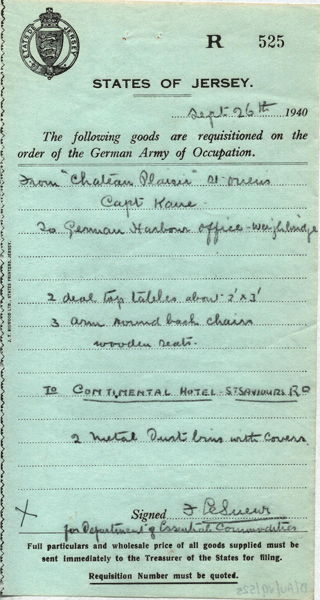 STATES OF JERSEY
R 525
STATES OF JERSEY.
Sept 26th 1940
The following goods are requisitioned on the
order of the German Army of Occupation.
From "Chateau Plaisir" St Ouens
Capt Kane
To German Harbour Office - Weighbridge
2 deal top tables about
3 arm round back chairs
wooden seats.
To CONTINENTAL HOTEL - ST SAVIOURS RD
2 Metal Dust bins with covers
X
Signed F Le Sueur
for Department of Essential Commodities
Full particulars and wholesale price of all goods supplied must be
sent immediately to the Treasurer of the States for filing.
Requisition Number must be quoted.